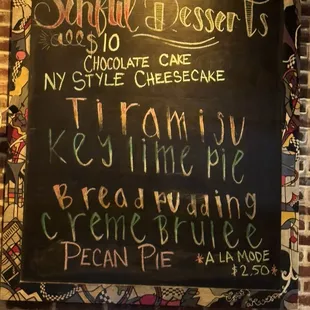 Sinful Desserts
all $10
Chocolate Cake
NY Style Cheesecake
Tiramisu
Key lime Pie
Bread Pudding
Creme Brulee
Pecan Pie
*A La Mode
$2.50*